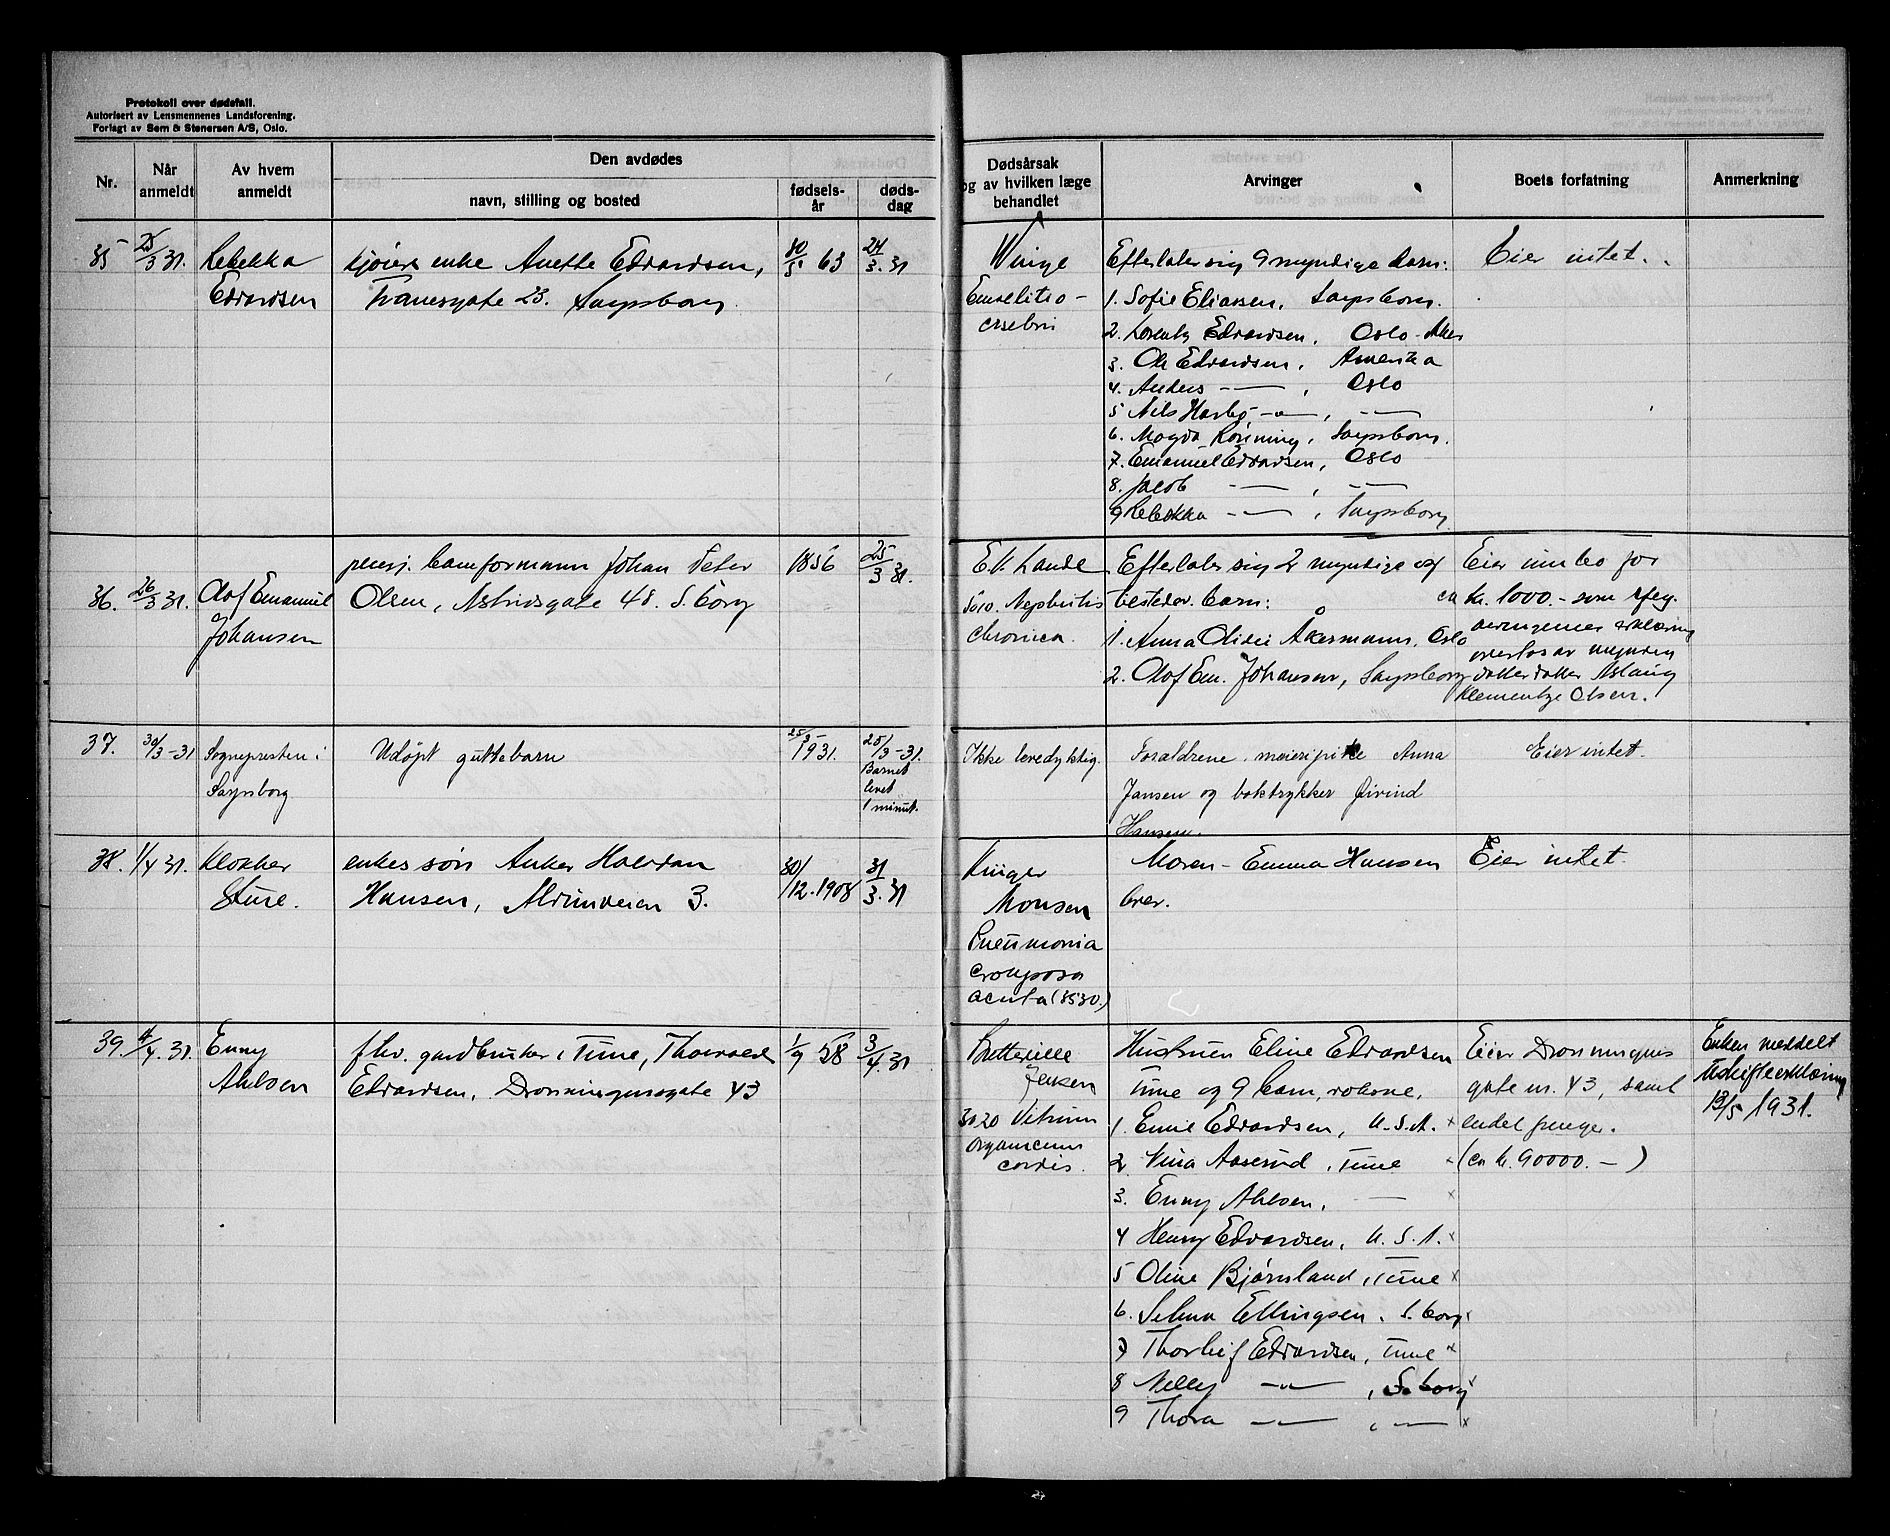 Protokoll over dødsfall.
Autorisert av Lensmennenes Landsforening.
Forlagt av Sem & Stenersen A/S, Oslo.
Nr.
Når anmeldt
Av hvem anmeldt
Den avdødes
navn, stilling og bosted
fødsels-år
døds-dag
Dødsårsak
og av hvilken læge
behandlet
Arvinger
Boets forfatning
Anmerkning
35
25/3 31.
Rebekka
Edvardsen
enke Anette Edvardsen,
Tranesgate 23. Sarpsborg.
30/5 63
24/3. 31
Winge
Efterlater sig 9 myndige barn:
1. Sofie Eliassen, Sarpsborg.
2. Lorentz Edvardsen, Oslo - Aker
3. Ole Edvardsen, Amerika
4. Anders —„— , Oslo
5 Nils Harby —„— , —„—
6. Magda Rönning, Sarpsborg.
7. Emanuel Edvardsen, Oslo
8. Jacob —„— , —„—
9 Rebekka —„— , Sarpsborg
Eier intet.
36.
26/3 31.
Olof Emanuel
Johansen
pensj. bomformann Johan Peter
Olsen, Astridsgate 48. S.borg
1856
25/3 31.
E. V. Lande
5010. Nephritis
chronica.
Efterlater sig 2 myndige og
bestedr. barn:
1. Anna Olidei Åkermann, Oslo
2. Olof Em. Johansen, Sarpsborg
Eier innbo for
ca kr. 1000.- som ifølg.
arvingenes erklæring
overlos av myndig
datter datter Aslaug
Klementze Olsen.
37.
30/3-31
Sognepresten i
Sarpsborg
Udøpt guttebarn
25/3 1931.
25/3-31.
Barnet
levet
1 minut.
Ikke levedyktig.
Foraldrene, meieripike Anna
Jansen og boktrykker Øivind
Hansen.
Eier intet.
38.
1/4 31.
Klokker
Sture.
enkes søn Anker Halvdan
Hansen, Alvimveien 3.
30/12.1908
31/3. 31
Monsen
Pneumonia
crouposa
acuta (3530.)
Moren - Emma Hansen
lever.
Eier intet.
39.
4/4. 31
Enny
Ahlsen
fhv. gardbruker i Tune, Thorvald
Edvardsen, Dronningensgate 43
1/9 58
3/4. 31
Jensen
3020 Vitium
organicum
cordis.
Hustruen Eline Edvardsen
Tune og 9 barn, voksne.
1. Emil Edvardsen, U.S.A. x
2. Nina Aaserud, Tune
3. Enny Ahlsen, — x
4 Henry Edvardsen, U.S.A. x
5 Oline Bjørnsland, Tune x
6. Selma Ellingsen, S.borg x
7 Thorleif Edvardsen, Tune x
8 Nelly —„— , S.borg x
9 Thora —„— , —„— x
Eier Dronningens
gate nr. 43, samt
endel penger.
(ca kr. 90000.-)
Enken meddelt
Uskifteerklæring
13/5 1931.